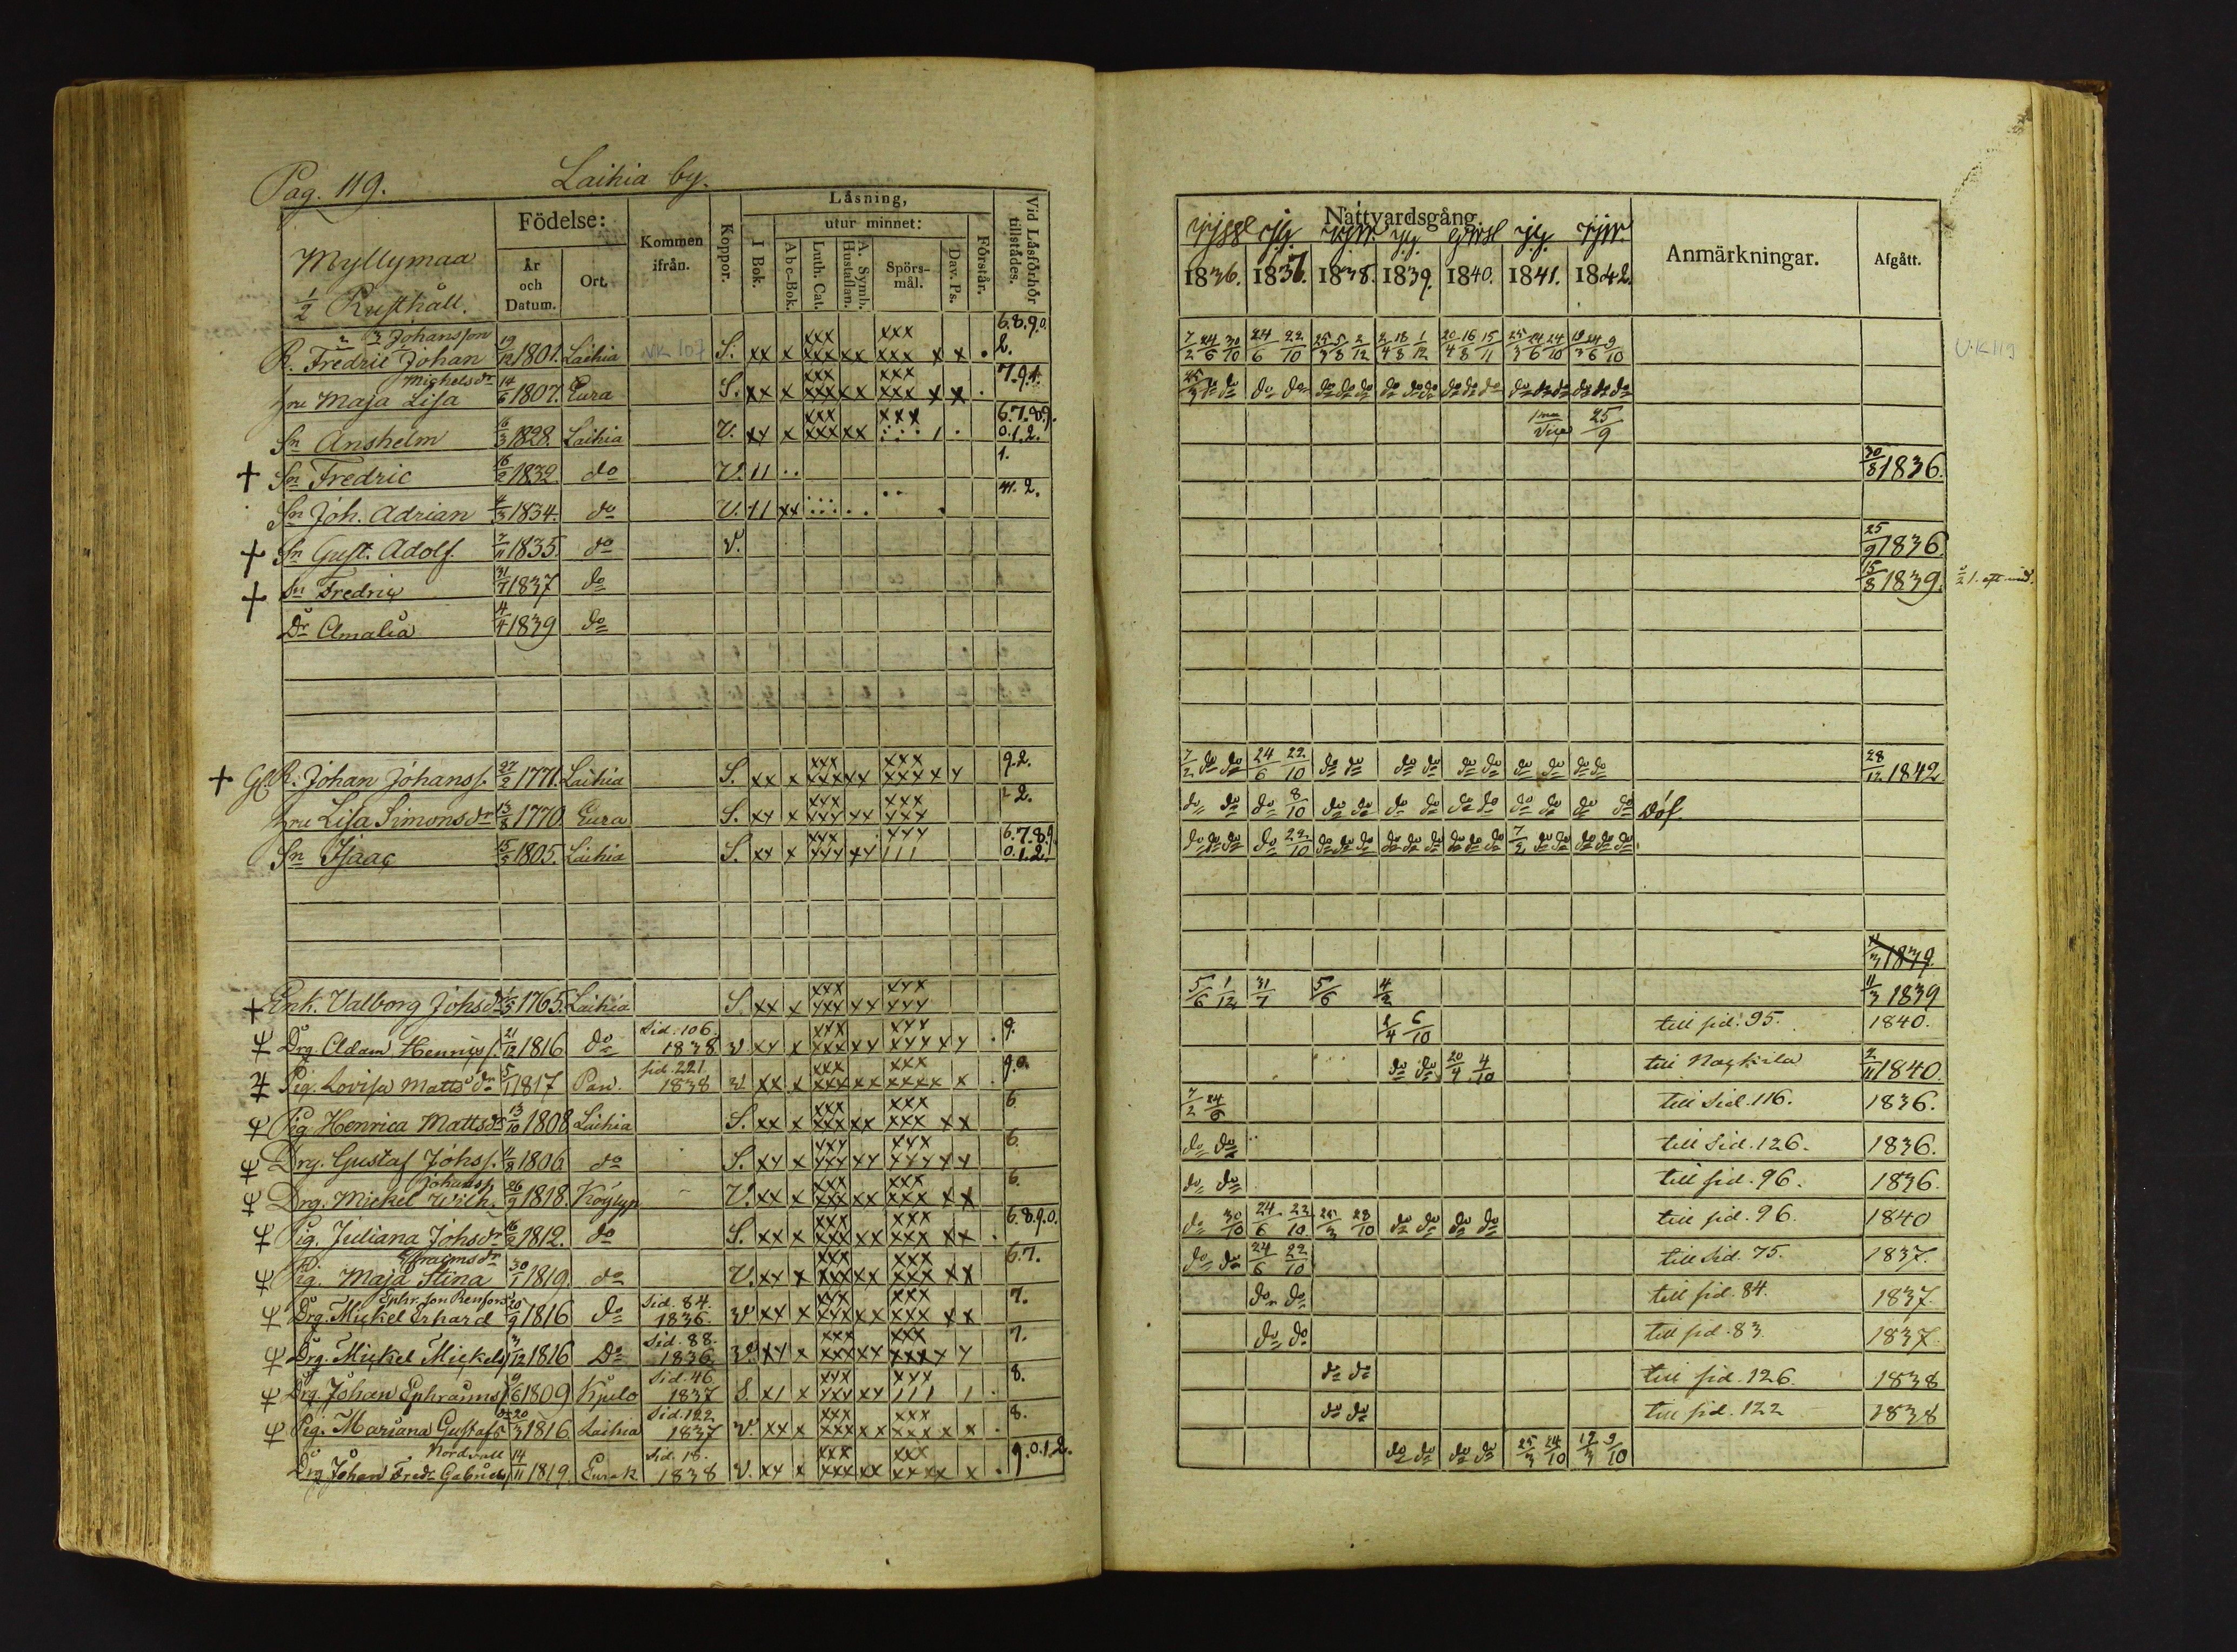 Pag. 119. Laihia by.
Myllymaa
1/2 Rusthåll.
Födelse:
År och Datum.
Ort.
Kommen ifrån.
Koppor.
Läsning,
I Bok.
utur minnet:
Abc-Bok.
Luth. Cat.
A. Symb. Hustaflan.
Spörs-mål.
Dav. Ps.
Förstår.
Vid Läsförhör tillstädes.
Nattvardsgång
1836. 1837. 1838. 1839. 1840. 1841. 1842.
Anmärkningar.
Afgått.
Johansson
R. Fredric Johan 19/12 1801. Laihia NK 107 S. xx x xxx xxx xx xxx xxx x x . 6.8.9.0. 2. 7/2 24/6 30/10 24/6 22/10 25/3 5/8 2/12 2/4 18/8 1/12 20/4 16/8 15/11 25/3 24/6 24/10 19/3 24/6 9/10
Michelsdr
hru Maja Lisa 14/6 1807. Eura S. xx x xxx xxx xx xxx xxx x x . 7.9.1. 25/3 do do do do do do do do do do do do do do do do do do do
Sn Anshelm 6/3 1828. Laihia V. xx x xxx xxx xx xxx 6.7.8.9. 0.1.2. 25/9
+ Sn Fredric 16/2 1832. do V. 11 .. 1. 30/8 1836.
Sn Joh. Adrian 4/3 1834. do V. 11 xx 2.
+ Sn Gust. Adolf. 7/11 1835. do V. 25/9 1836.
+ Sn Fredric 31/7 1837 do 15/8 1839.
Dr Amalia 4/4 1839 do
+ Gl. R. Johan Johanss. 27/2 1771. Laihia S. xx x xxx xxx xx xxx xxx x x 9.2. 7/2 do do 24/6 22/10 do do do do do do do do do do 28/12 1842
hru Lisa Simonsdr 13/8 1770 Eura S. xx x xxx xxx xx xxx xxx 2. do do do 8/10 do do do do do do do do do do Döf
Sn Isaac 15/3 1805. Laihia S. xx x xxx xxx xx xxx 111 6.7.8.9. 0.1.2. do do do do 22/10 do do do do do do do do do 7/2 do do do do do
11/3 1839.
+ Enk. Valborg Johsdr 1765. Laihia S. xx x xxx xxx xx xxx xxx 5/6 1/12 31/7 5/6 4/2 11/3 1839
Drg. Adam Henrics. 21/12 1816 do Sid. 106. 1838 V xx x xxx xxx xx xxx xxx x x . 9. 2/4 6/10 till sid. 95. 1840.
Pig. Lovisa Mattsdr 5/1 1817 Pan. sid. 221 1838 V. xx x xxx xxx xx xxx xxx x x . 9.0. do do 20/4 4/10 till Nackila 2/11 1840.
Pig Henrica Mattsdr 13/10 1808 Laihia S. xx x xxx xxx xx xxx xxx x x 6. 7/2 24/6 till Sid. 116. 1836.
Drg. Gustaf Johss. 1806 do S. xx x xxx xxx xx xxx xxx x x 6. do do till Sid. 126. 1836.
Johanss.
Drg. Mickel Wilh. 26/9 1818. Köylyp V. xx x xxx xxx xx xxx xxx x x 6. do do till sid. 96. 1836.
Pig. Juliana Johsdr 16/2 1812. do S. xx x xxx xxx xx xxx xxx x x . 6.8.9.0. do 30/10 24/6 22/10 25/3 28/10 do do do do till sid. 96. 1840
Efraimsdr
Pig. Maja Stina 30/1 1819. do V. xx x xxx xxx xx xxx xxx x x 6.7. do do 24/6 22/10 till Sid. 75. 1837.
Ephr. son Renfors
Drg. Mickel Erhard 20/9 1816 do Sid. 84. 1836. V xx x xxx xxx xx xxx xxx x x 7. do do till sid. 84. 1837.
Drg. Mickel Mickels. 3/12 1816 Do Sid. 88. 1836 V. xx x xxx xxx xx xxx xxx x x 7. do do till sid. 83. 1837.
Drg. Johan Ephraims. 9/6 1809 Kjulo Sid. 46. 1837 S. x1 x xxx xxx xx xxx 111 1 . 8. do do till sid. 126. 1838
Pig. Mariana Gustafsdr 20/3 1816. Laihia Sid. 122 1837 V. xx x xxx xxx xx xxx xxx x x . 8. do do till sid. 122 1838
Nordvall
Drg Johan Fredr. Gabriels. 14/11 1819. Eurak. Sid. 18. 1838 V. xx x xxx xxx xx xxx xxx x x . 9.0.1.2. do do do do 25/3 24/10 19/3 9/10
V.K 119